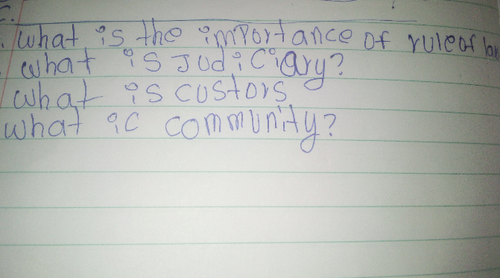 what is the importance of rule of law
what is Judiciary?
what is custors
what ic community?